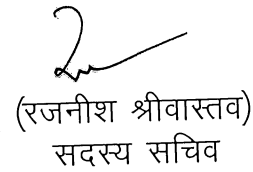 (रजनीश श्रीवास्तव)
सदस्य सचिव